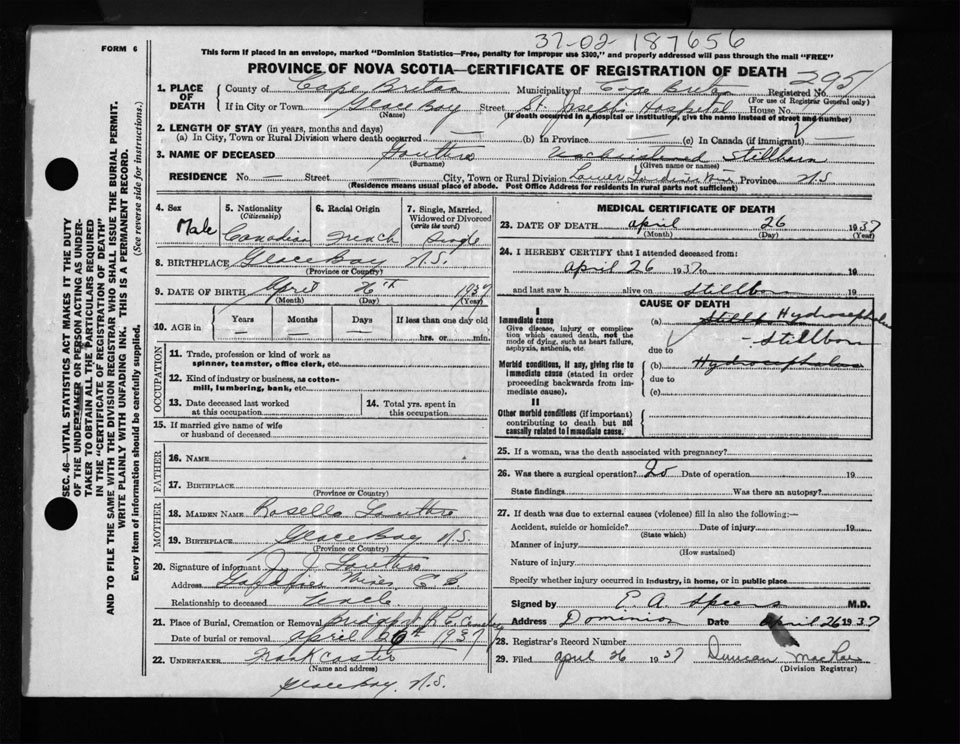 37-02-187656
FORM 6
This form if placed in an envelope, marked "Dominion Statistics—Free, penalty for improper use $300," and properly addressed will pass through the mail "FREE"
PROVINCE OF NOVA SCOTIA—CERTIFICATE OF REGISTRATION OF DEATH
295
1. PLACE OF DEATH
County of Cape Breton Municipality of Cape Breton Registered No.
(For use of Registrar General only)
If in City or Town Glace Bay Street St. Joseph Hospital House No.
(Name) (If death occurred in a hospital or institution, give the name instead of street and number)
2. LENGTH OF STAY (in years, months and days)
(a) In City, Town or Rural Division where death occurred (b) In Province (c) In Canada (if immigrant)
3. NAME OF DECEASED Gouthro Stillborn
(Surname) (Given name or names)
RESIDENCE No. — Street City, Town or Rural Division Lower Province N.S.
(Residence means usual place of abode. Post Office Address for residents in rural parts not sufficient)
4. Sex Male
5. Nationality (Citizenship) Canadian
6. Racial Origin French
7. Single, Married, Widowed or Divorced (write the word) Single
8. BIRTHPLACE Glace Bay N.S.
(Province or Country)
9. DATE OF BIRTH April 26th 1937
(Month) (Day) (Year)
10. AGE in Years Months Days If less than one day old
hrs. or min.
OCCUPATION
11. Trade, profession or kind of work as spinner, teamster, office clerk, etc.
12. Kind of industry or business, as cotton-mill, lumbering, bank, etc.
13. Date deceased last worked at this occupation
14. Total yrs. spent in this occupation
15. If married give name of wife or husband of deceased
FATHER
16. NAME
17. BIRTHPLACE
(Province or Country)
MOTHER
18. MAIDEN NAME Rosella Gouthro
19. BIRTHPLACE Glace Bay N.S.
(Province or Country)
20. Signature of informant J. J. Gouthro
Address Mines C B
Relationship to deceased Uncle
21. Place of Burial, Cremation or Removal R.C. Cemetery
Date of burial or removal april 26th 1937
22. UNDERTAKER Frank
(Name and address)
Glace Bay. N.S.
MEDICAL CERTIFICATE OF DEATH
23. DATE OF DEATH april 26 1937
(Month) (Day) (Year)
24. I HEREBY CERTIFY that I attended deceased from:
april 26 1937 to 19
and last saw h alive on Stillborn 19
CAUSE OF DEATH
I
Immediate cause
Give disease, injury or complication which caused death, not the mode of dying, such as heart failure, asphyxia, asthenia, etc.
(a) Hydrocephalus
- Stillborn
due to
Morbid conditions, if any, giving rise to immediate cause (stated in order proceeding backwards from immediate cause).
(b) Hydrocephalus
due to
(c)
II
Other morbid conditions (if important) contributing to death but not causally related to immediate cause.
25. If a woman, was the death associated with pregnancy?
26. Was there a surgical operation? Date of operation 19
State findings Was there an autopsy?
27. If death was due to external causes (violence) fill in also the following:—
Accident, suicide or homicide? Date of injury 19
(State which)
Manner of injury
(How sustained)
Nature of injury
Specify whether injury occurred in industry, in home, or in public place
Signed by E. A. Speers M.D.
Address Dominion Date april 26 1937
28. Registrar's Record Number
29. Filed april 26 1937 Duncan MacRae
(Division Registrar)
SEC. 46—VITAL STATISTICS ACT MAKES IT THE DUTY
OF THE UNDERTAKER OR PERSON ACTING AS UNDER-
TAKER TO OBTAIN ALL THE PARTICULARS REQUIRED
IN THE "CERTIFICATE OF REGISTRATION OF DEATH"
AND TO FILE THE SAME WITH THE DIVISION REGISTRAR WHO SHALL ISSUE THE BURIAL PERMIT.
WRITE PLAINLY WITH UNFADING INK. THIS IS A PERMANENT RECORD.
Every item of information should be carefully supplied. (See reverse side for instructions.)